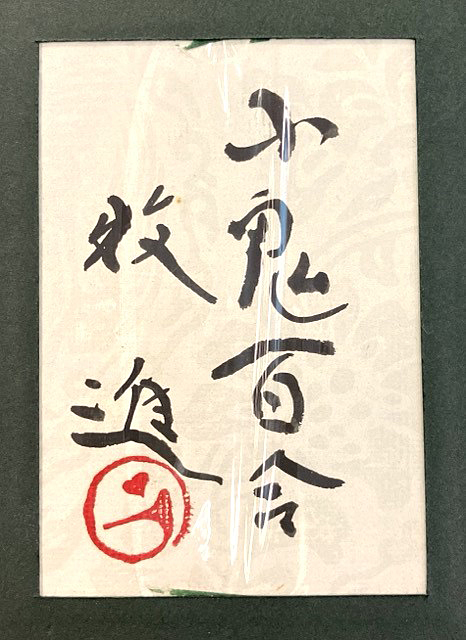 小鬼百合
牧進